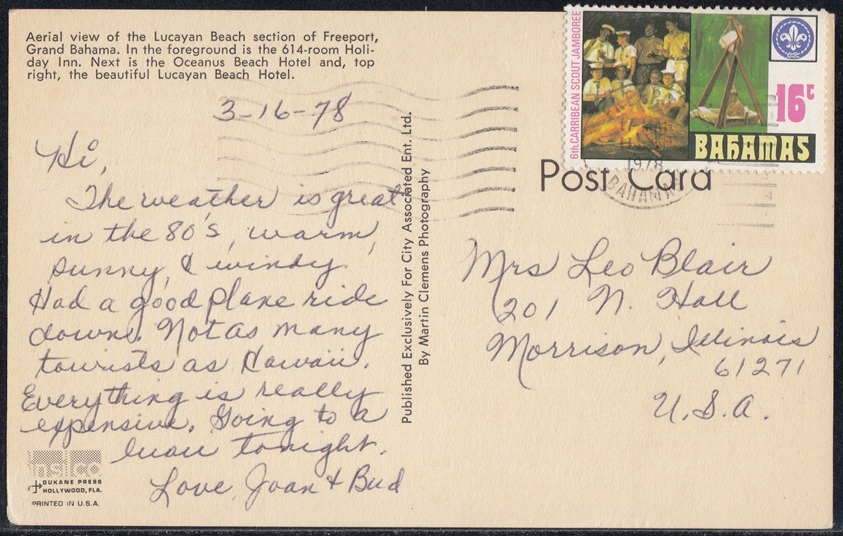 Aerial view of the Lucayan Beach section of Freeport,
Grand Bahama. In the foreground is the 614-room Holi-
day Inn. Next is the Oceanus Beach Hotel and, top
right, the beautiful Lucayan Beach Hotel.
3-16-78
Hi,
The weather is great
in the 80's, warm,
sunny, & windy.
Had a good plane ride
down. Not as many
tourists as Hawaii.
Everything is really
expensive. Going to a
luau tonight.
Love, Joan + Bud
DUKANE PRESS
HOLLYWOOD, FLA.
PRINTED IN U.S.A.
Published Exclusively For City Associated Ent. Ltd.
By Martin Clemens Photography
6th CARRIBEAN SCOUT JAMBOREE
16c
BAHAMAS
1978
BAHAMA
Post Card
Mrs Leo Blair
201 N. Hall
Morrison, Illinois
61271
U.S.A.